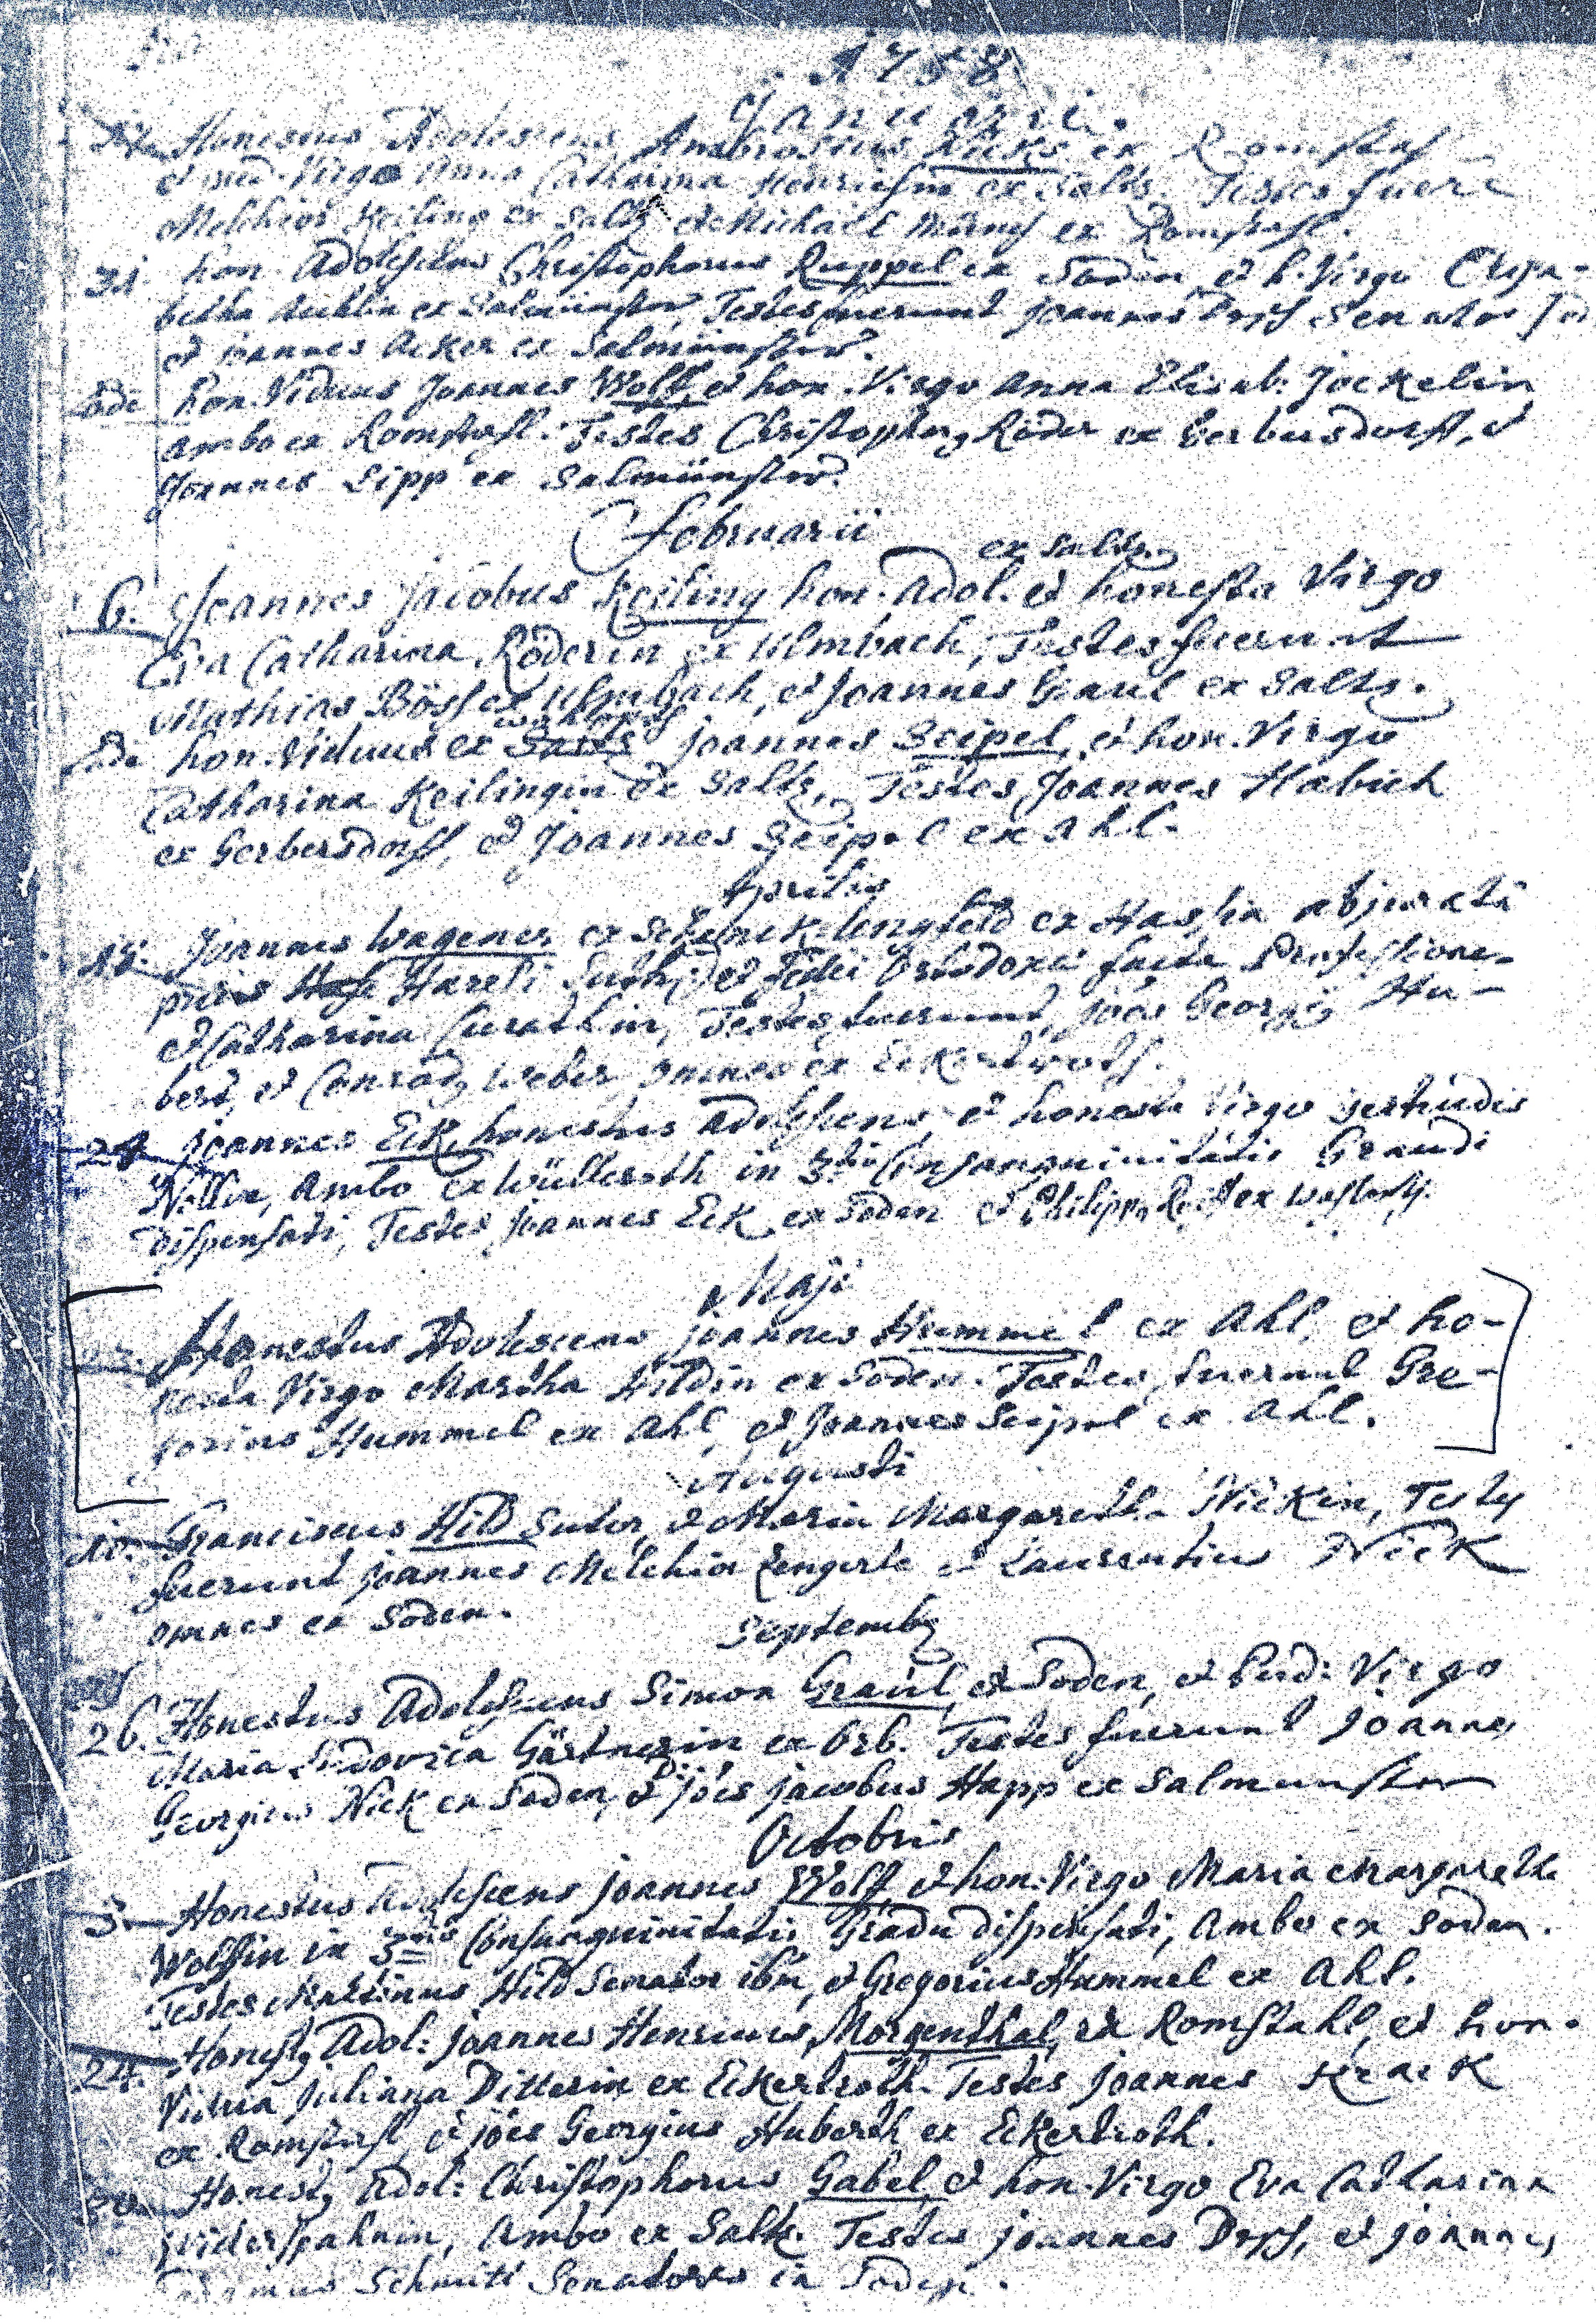 1758
Januarii.
Honestus Adolescens Ambrosius ex Romsthal
et pud. Virgo Anna Catharina ex Saltz. Testes fuere
Melchior Keiling ex Saltz et Michael ex Romsthal.
31. hon. Adolescens Christophorus Ruppel ex Soden, et h. Virgo Elisa-
betha ex Salmünster, Testes fuerunt Joannes Senator
et Joannes Acker ex Salmünster.
Eode hon. Viduus Joannes Wolff, et hon. Virgo Anna Elisab: Jockelin
ambo ex Romsthal. Testes Christophorus Röder ex Gerbersdorff, et
Joannes Lipp ex Salmünster.
Februarii
ex Saltz
6. Joannes Jacobus Keiling hon. Adol. et honesta Virgo
Eva Catharina Röderin ex Ulmbach, Testes fuerunt
Mathias Böss ex Ulmbach, et Joannes Graul ex Saltz.
Eode hon. Viduus ex Joannes Seipel, et hon. Virgo
Catharina Keilingin de Saltz, Testes Joannes Habich
ex Gerbersdorff, et Joannes Seipel ex Ahl.
Aprilis
18. Joannes Wagener ex Schenckelengsfeld ex Hassia abjurata
prius Haresi Luth: et fidei Orthodoxae facta Professione
et Catharina Testes fuerunt, Joes Georgius Hu-
bert, et Conradus Weber omnes ex Eckertroth.
24 Joannes Eck honestus Adolescens et honesta Virgo Gertrudis
ambo ex Wülleroth in 3tio Consanguinitatis Gradu
dispensati, Testes Joannes Eck ex Soden et Philippus ex
Maji
Honestus Adolescens Joannes Hummel ex Ahl, et ho-
nesta Virgo Martha Hildin ex Soden. Testes fuerunt Gre-
gorius Hummel ex Ahl, et Joannes Seipel ex Ahl.
Augusti
Franciscus Hild Sutor, et Maria Margaretha Nickin, Testes
fuerunt Joannes Melchior Lengerle et Laurentius Nick
omnes ex Soden.
Septembris
26. Honestus Adolescens Simon Graul, ex Soden, et Pud: Virgo
Maria Ludovica Gärtnerin ex Orb. Testes fuerunt Joannes
Georgius Nick ex Soden, et Joes Jacobus Happ ex Salmunster
Octobris
3. Honestus Adolescens Joannes Wolff, et hon. Virgo Maria Margaretha
Wolffin in 3tio Consanguinitatis Gradu dispensati, ambo ex Soden.
Testes Martinus Hild Senator ibm, et Gregorius Hummel ex Ahl.
24. Honestus Adol: Joannes Henricus Morgenthal, ex Romstahl, et hon.
Vidua Juliana Ditterin ex Eckertroth. Testes Joannes Krack
ex Romsthal, et Joes Georgius Huberth ex Eckertroth.
Honestus Adol: Christophorus Gabel, et hon. Virgo Eva Catharina
Widerspahnin, ambo ex Saltz. Testes Joannes et Joannes
Schmitt Senatores in Soden.